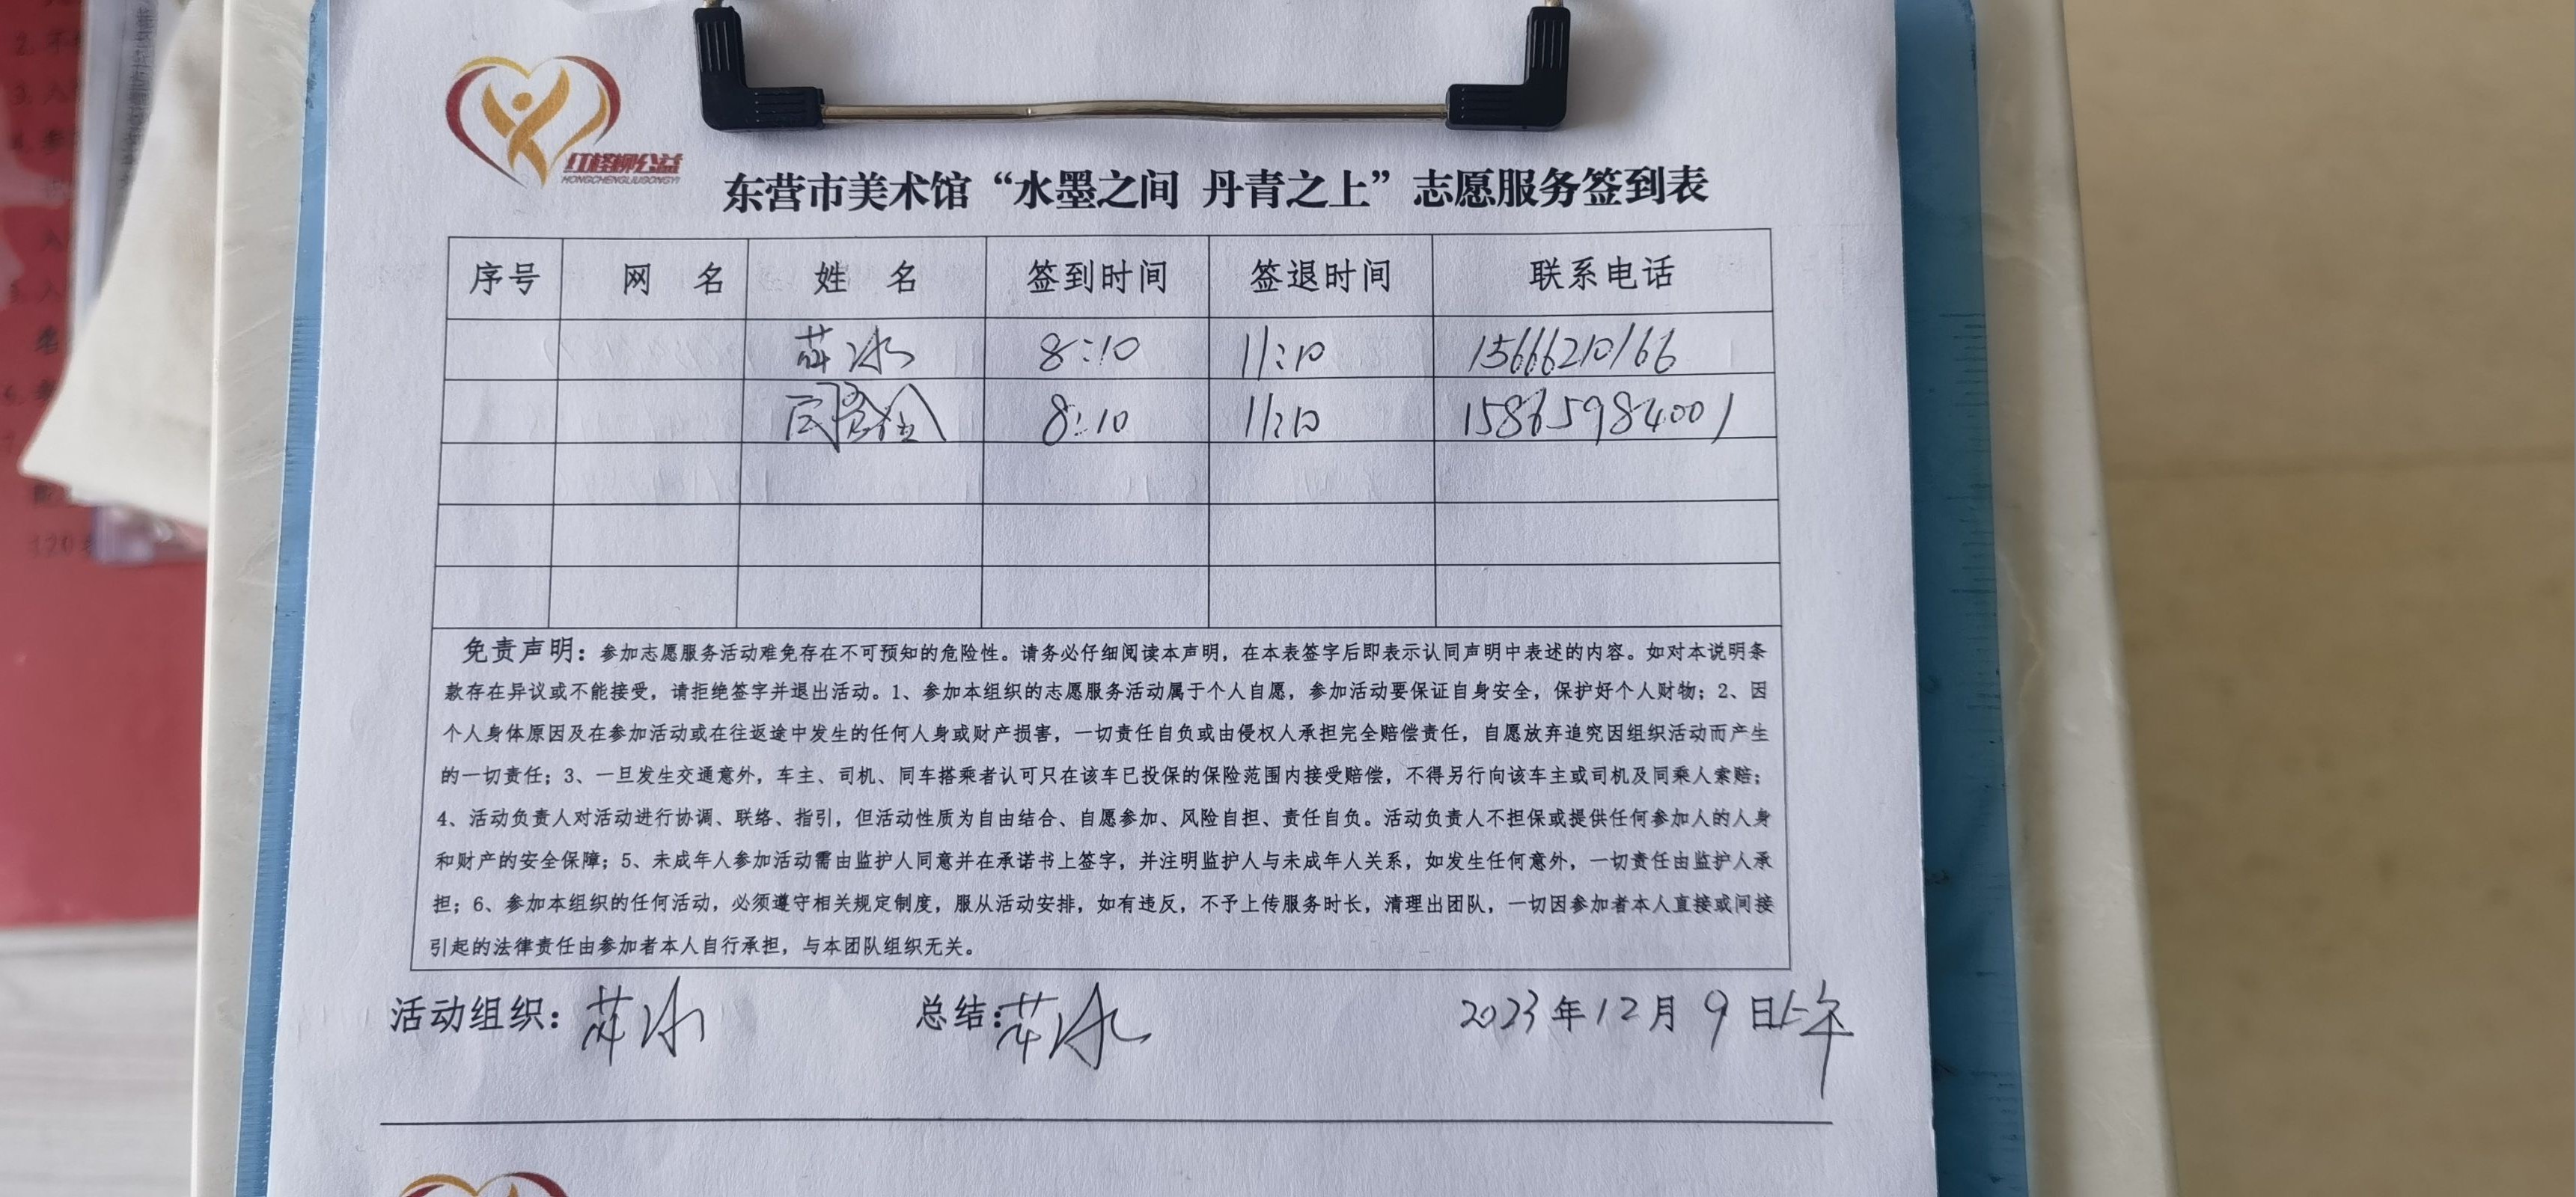 红柽柳公益
HONGCHENGLIUGONGYI
东营市美术馆“水墨之间 丹青之上”志愿服务签到表
序号 网 名 姓 名 签到时间 签退时间 联系电话
冰 8:10 11:10 15666210166
8:10 11:10 15865984001
免责声明：参加志愿服务活动难免存在不可预知的危险性。请务必仔细阅读本声明，在本表签字后即表示认同声明中表述的内容。如对本说明条
款存在异议或不能接受，请拒绝签字并退出活动。1、参加本组织的志愿服务活动属于个人自愿，参加活动要保证自身安全，保护好个人财物；2、因
个人身体原因及在参加活动或在往返途中发生的任何人身或财产损害，一切责任自负或由侵权人承担完全赔偿责任，自愿放弃追究因组织活动而产生
的一切责任；3、一旦发生交通意外，车主、司机、同车搭乘者认可只在该车已投保的保险范围内接受赔偿，不得另行向该车主或司机及同乘人索赔；
4、活动负责人对活动进行协调、联络、指引，但活动性质为自由结合、自愿参加、风险自担、责任自负。活动负责人不担保或提供任何参加人的人身
和财产的安全保障；5、未成年人参加活动需由监护人同意并在承诺书上签字，并注明监护人与未成年人关系，如发生任何意外，一切责任由监护人承
担；6、参加本组织的任何活动，必须遵守相关规定制度，服从活动安排，如有违反，不予上传服务时长，清理出团队，一切因参加者本人直接或间接
引起的法律责任由参加者本人自行承担，与本团队组织无关。
活动组织：冰 总结：冰 2023年12月9日上午